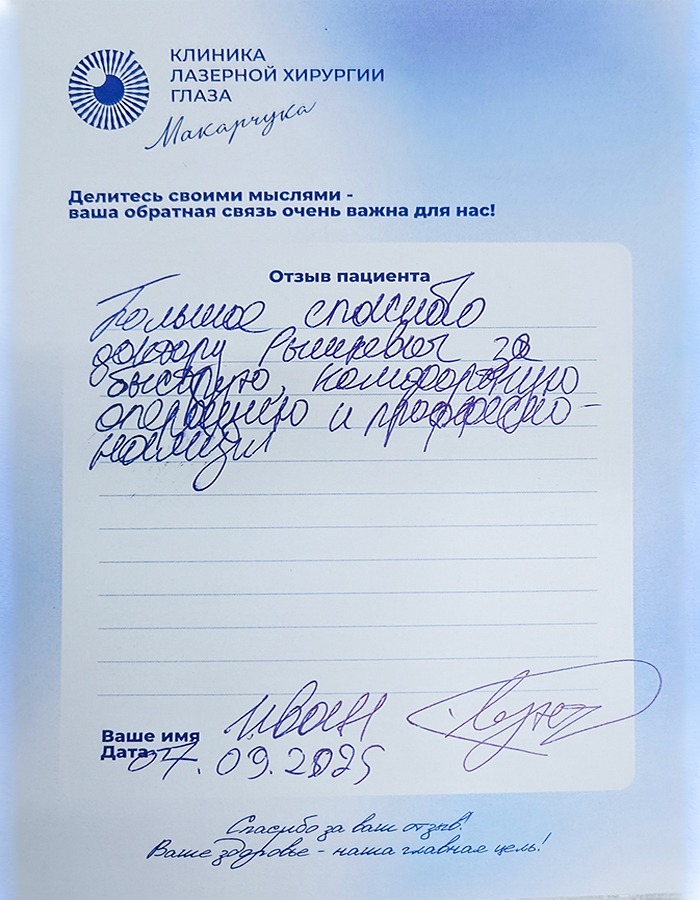 КЛИНИКА
ЛАЗЕРНОЙ ХИРУРГИИ
ГЛАЗА
Макарчука
Делитесь своими мыслями -
ваша обратная связь очень важна для нас!
Отзыв пациента
Большое спасибо
доктору Рышкевич за
быструю, комфортную
операцию и профессио-
нализм
Ваше имя Иван
Дата 07.09.2025
Спасибо за ваш отзыв!
Ваше здоровье - наша главная цель!